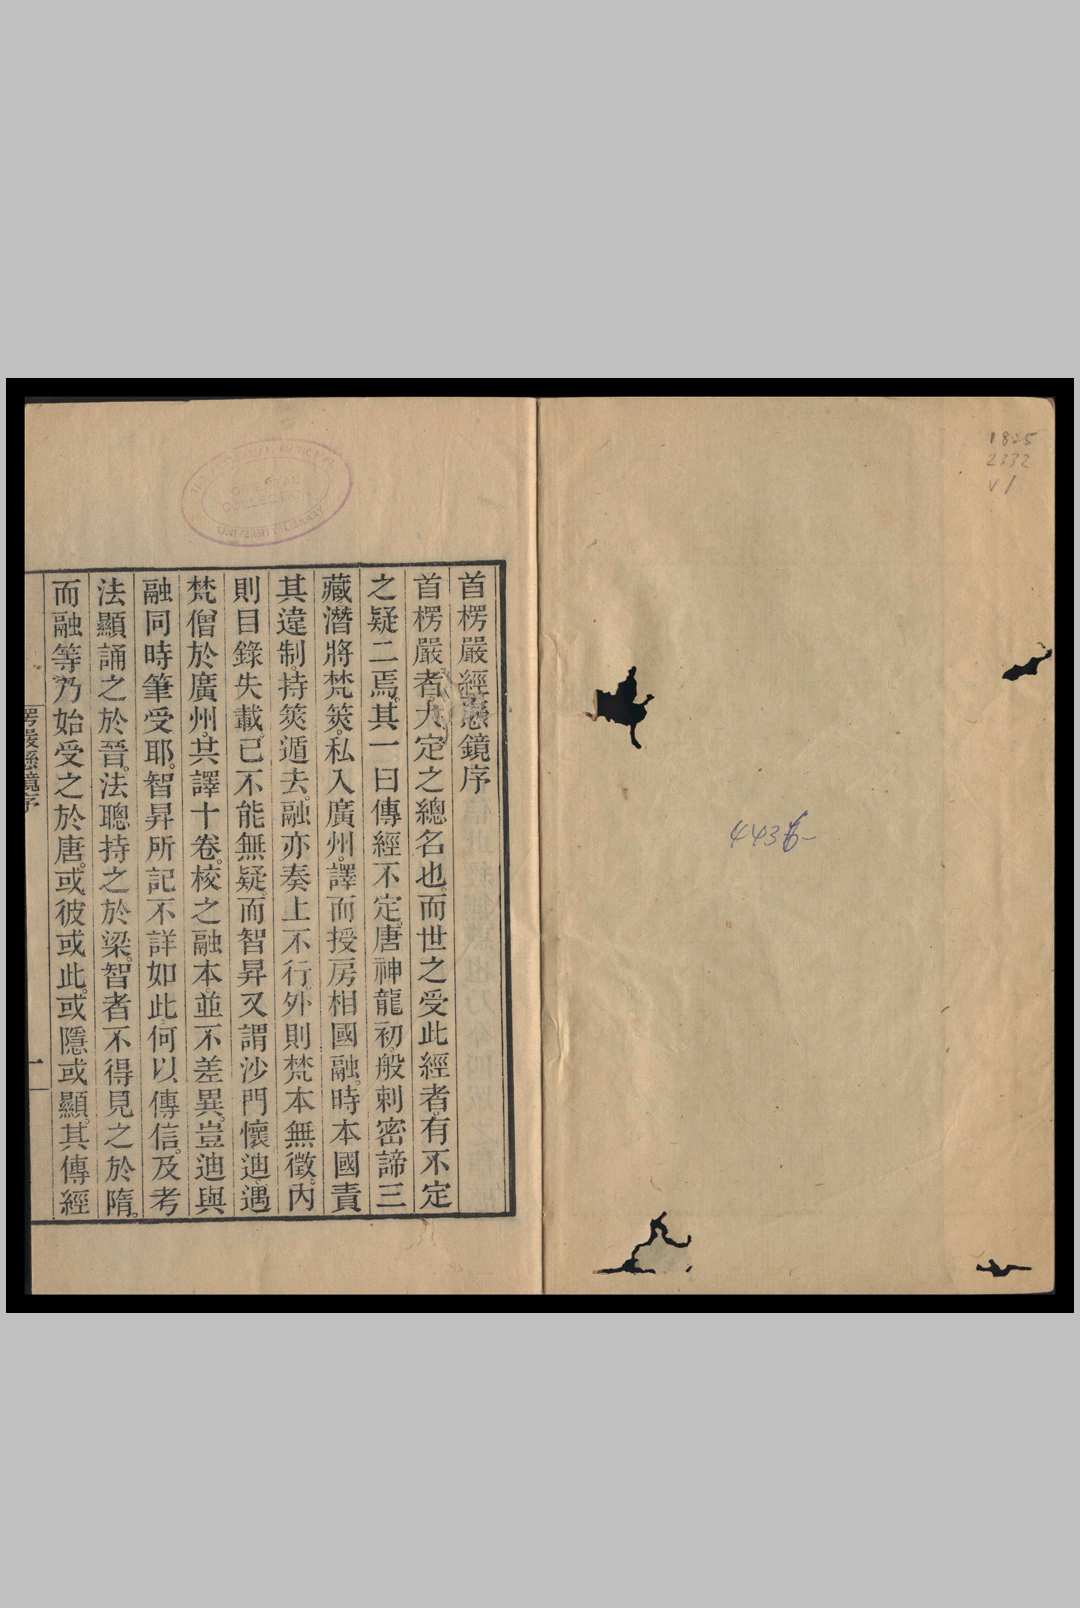 1825
2332
v1
4436-
首楞嚴經懸鏡序
首楞嚴者。大定之總名也。而世之受此經者。有不定
之疑二焉。其一曰傳經不定。唐神龍初。般剌密諦三
藏潛將梵筴。私入廣州。譯而授房相國融。時本國責
其違制。持筴遁去。融亦奏上不行。外則梵本無徵。內
則目錄失載。已不能無疑。而智昇又謂沙門懷迪。遇
梵僧於廣州。共譯十卷。校之融本。並不差異。豈迪與
融同時筆受耶。智昇所記不詳如此。何以傳信。及考
法顯誦之於晉。法聰持之於梁。智者不得見之於隋。
而融等乃始受之於唐。或彼或此。或隱或顯。其傳經
楞嚴懸鏡序
一